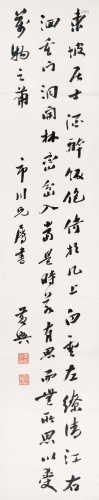 東坡居士酒醉飯飽倚於几上白雲左繚清江右
洄重門洞開林巒岔入當是時若有思而無所思以受
萬物之備
市川兄屬書
黃興